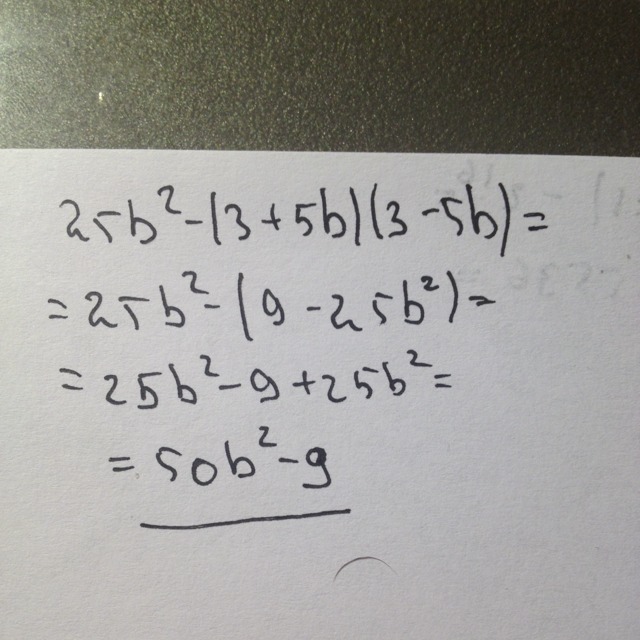 25b²-(3+5b)(3-5b)=
=25b²-(9-25b²)=
=25b²-9+25b²=
=50b²-9